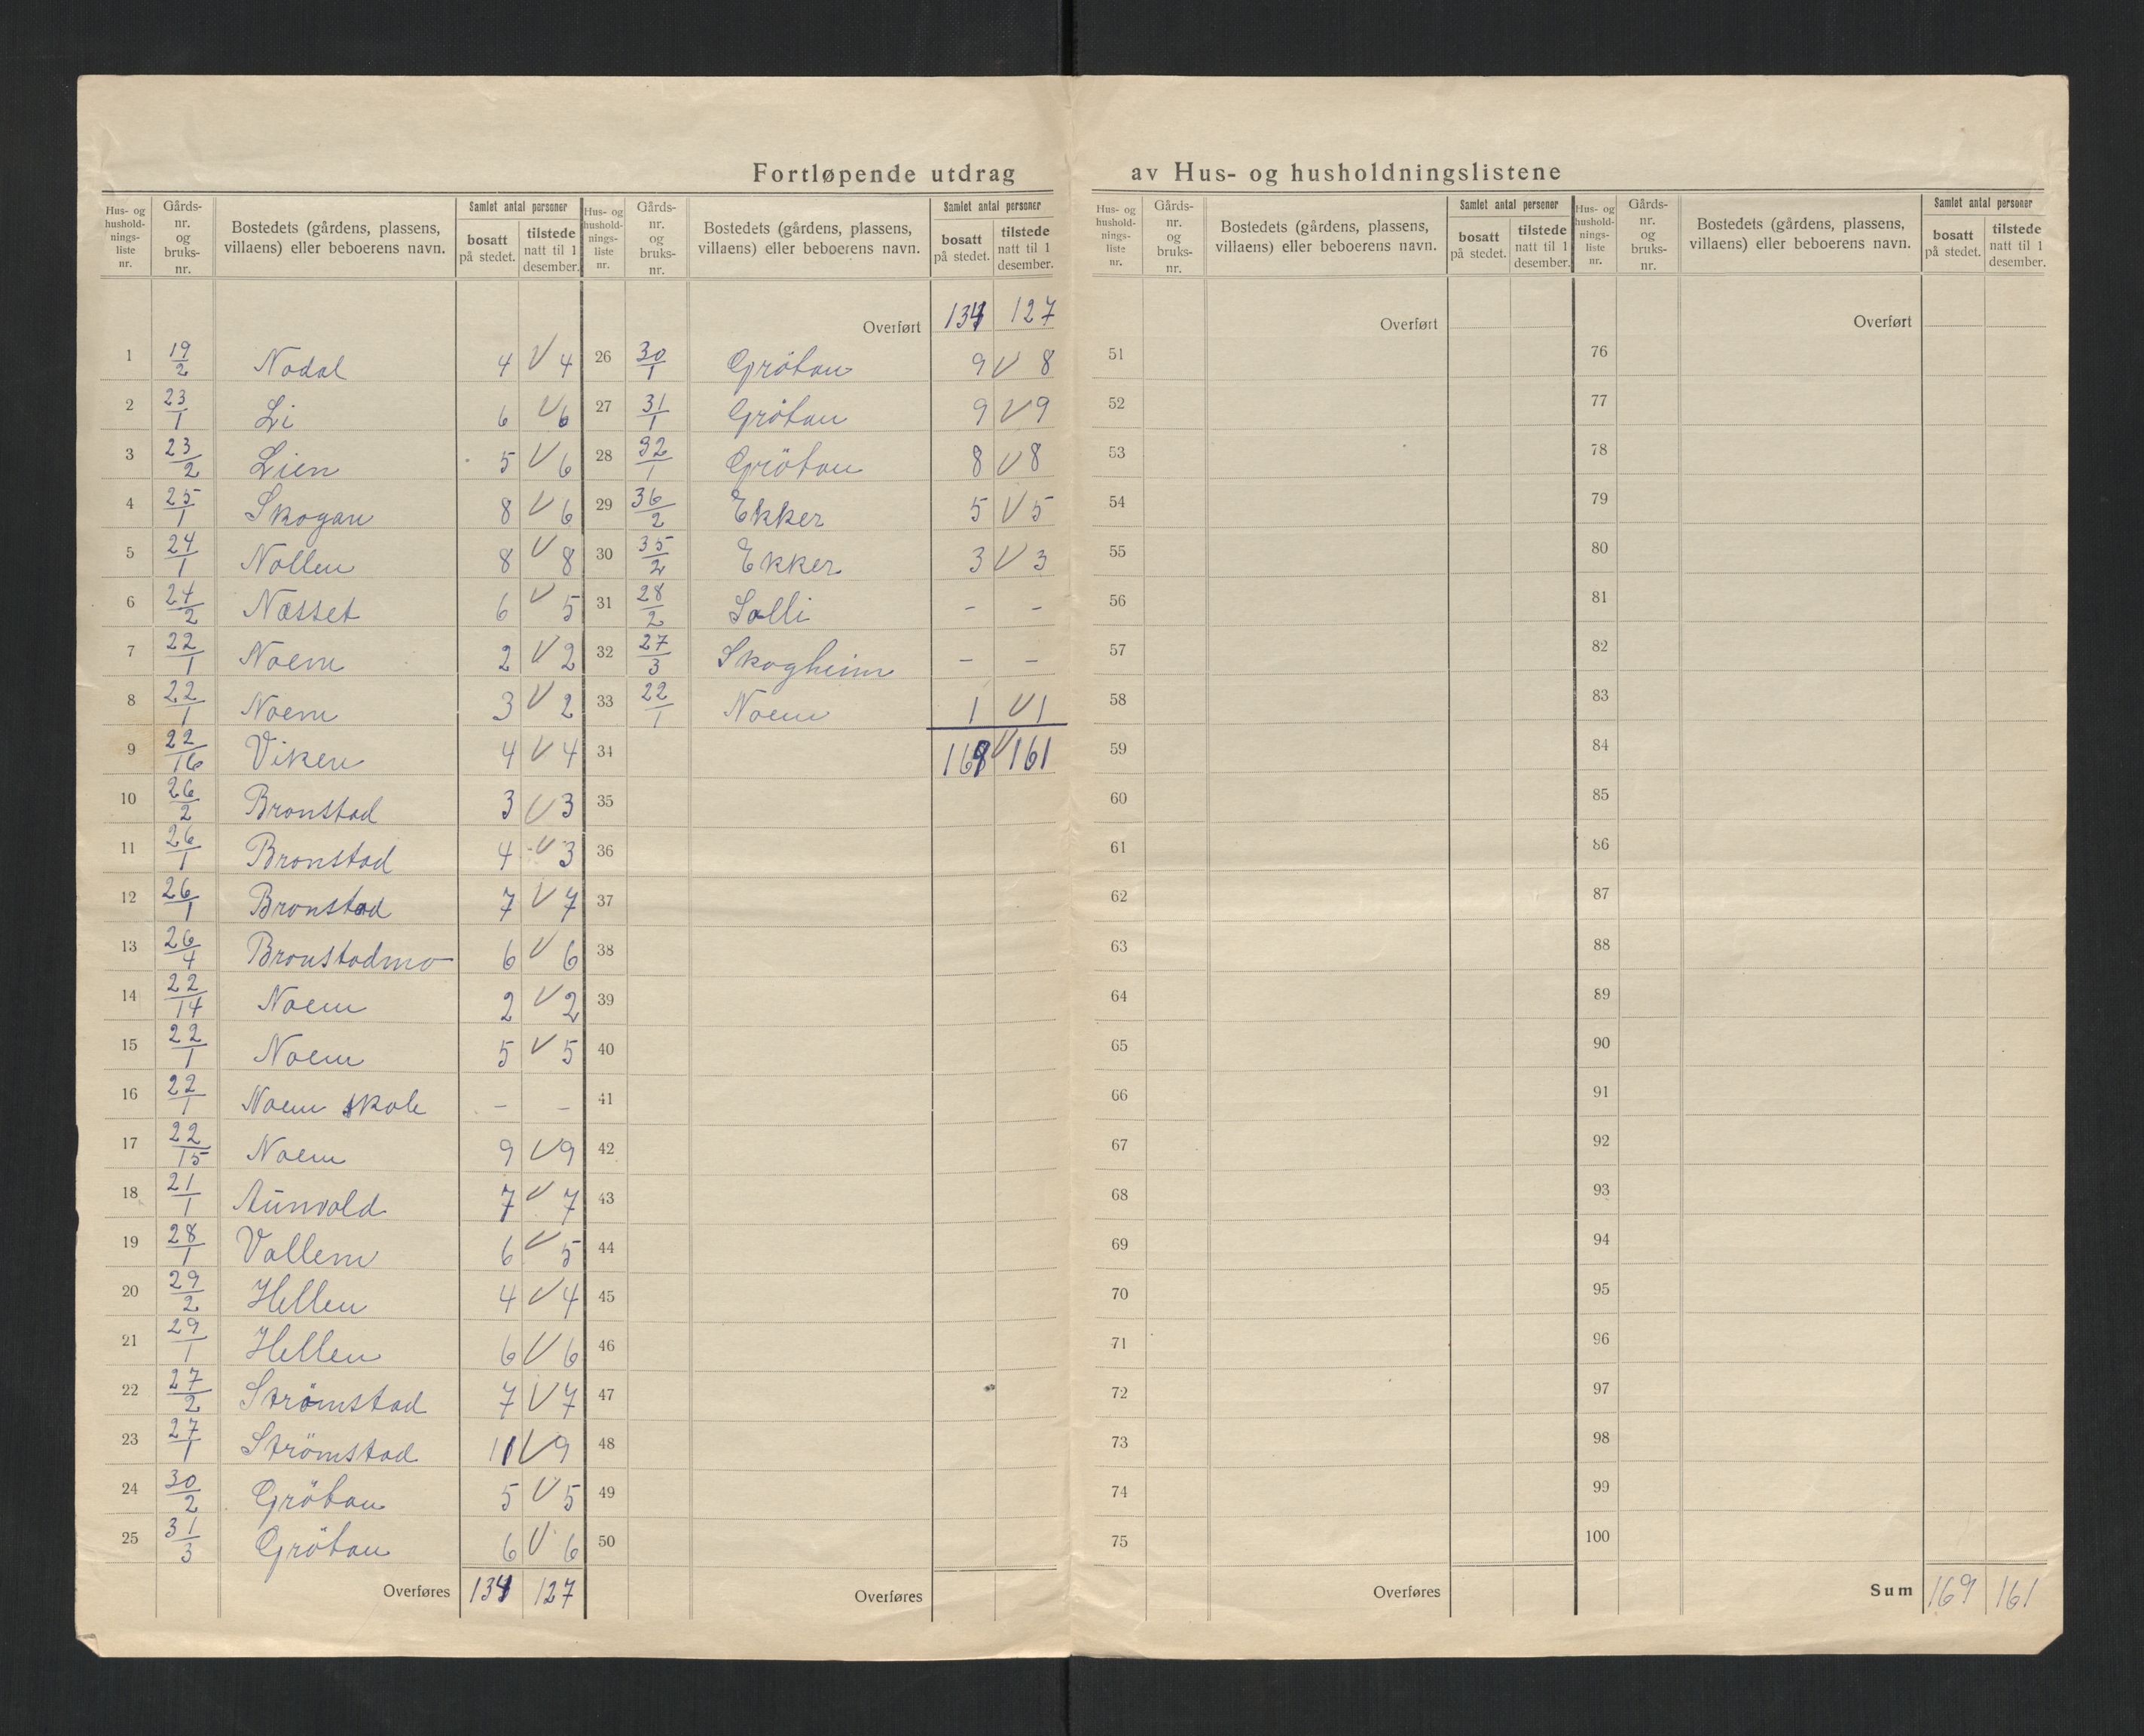 Fortløpende utdrag av Hus- og husholdningslistene
Hus- og hushold-nings-liste nr. Gårds-nr. og bruks-nr. Bostedets (gårdens, plassens, villaens) eller beboerens navn. Samlet antal personer bosatt på stedet. tilstede natt til 1 desember.
1 19/2 Nodal 4 V 4
2 23/1 Li 6 V 6
3 23/2 Lien 5 V 6
4 25/1 Skogan 8 V 6
5 24/1 Nollen 8 V 8
6 24/2 Næsset 6 V 5
7 22/1 Noem 2 V 2
8 22/1 Noem 3 V 2
9 22/16 Viken 4 V 4
10 26/2 Bronstad 3 V 3
11 26/1 Bronstad 4 V 3
12 26/1 Bronstad 7 V 7
13 26/4 Bronstadmo 6 V 6
14 22/14 Noem 2 V 2
15 22/1 Noem 5 V 5
16 22/1 Noem skole - -
17 22/15 Noem 9 V 9
18 21/1 Aunvold 7 V 7
19 28/1 Vollem 6 V 5
20 29/2 Hellen 4 V 4
21 29/1 Hellen 6 V 6
22 27/2 Strömstad 7 V 7
23 27/1 Strömstad 11 V 9
24 30/2 Grötan 5 V 5
25 31/3 Grötan 6 V 6
Overføres 134 127
Hus- og hushold-nings-liste nr. Gårds-nr. og bruks-nr. Bostedets (gårdens, plassens, villaens) eller beboerens navn. Samlet antal personer bosatt på stedet. tilstede natt til 1 desember.
Overført 134 127
26 30/1 Grötan 9 V 8
27 31/1 Grötan 9 V 9
28 32/1 Grötan 8 V 8
29 36/2 Ekker 5 V 5
30 35/2 Ekker 3 V 3
31 28/2 Solli - -
32 27/3 Skogheim - -
33 22/1 Noem 1 V 1
34 169 V 161
35
36
37
38
39
40
41
42
43
44
45
46
47
48
49
50
Overføres
Hus- og hushold-nings-liste nr. Gårds-nr. og bruks-nr. Bostedets (gårdens, plassens, villaens) eller beboerens navn. Samlet antal personer bosatt på stedet. tilstede natt til 1 desember.
Overført
51
52
53
54
55
56
57
58
59
60
61
62
63
64
65
66
67
68
69
70
71
72
73
74
75
Overføres
Hus- og hushold-nings-liste nr. Gårds-nr. og bruks-nr. Bostedets (gårdens, plassens, villaens) eller beboerens navn. Samlet antal personer bosatt på stedet. tilstede natt til 1 desember.
Overført
76
77
78
79
80
81
82
83
84
85
86
87
88
89
90
91
92
93
94
95
96
97
98
99
100
Sum 169 161